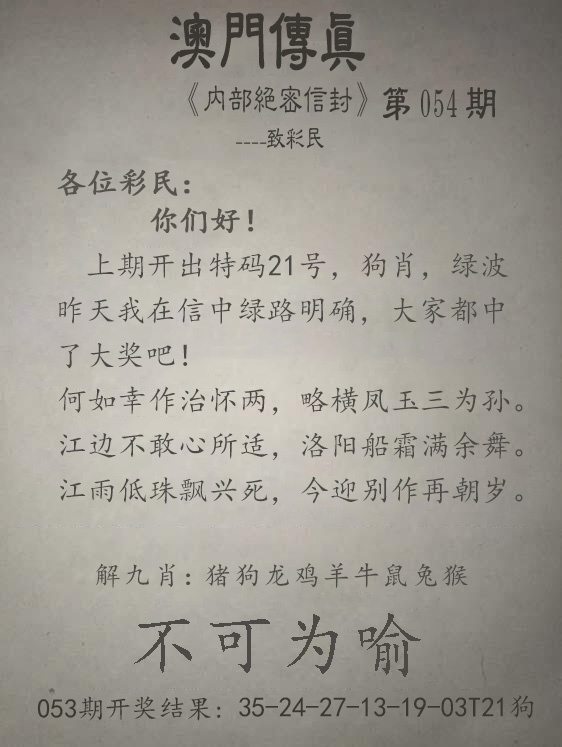 澳門傳眞
《内部絕密信封》第054期
----致彩民
各位彩民：
你们好！
上期开出特码21号，狗肖，绿波
昨天我在信中绿路明确，大家都中
了大奖吧！
何如幸作治怀两，略横凤玉三为孙。
江边不敢心所适，洛阳船霜满余舞。
江雨低珠飘兴死，今迎别作再朝岁。
解九肖：猪狗龙鸡羊牛鼠兔猴
不可为喻
053期开奖结果：35-24-27-13-19-03T21狗